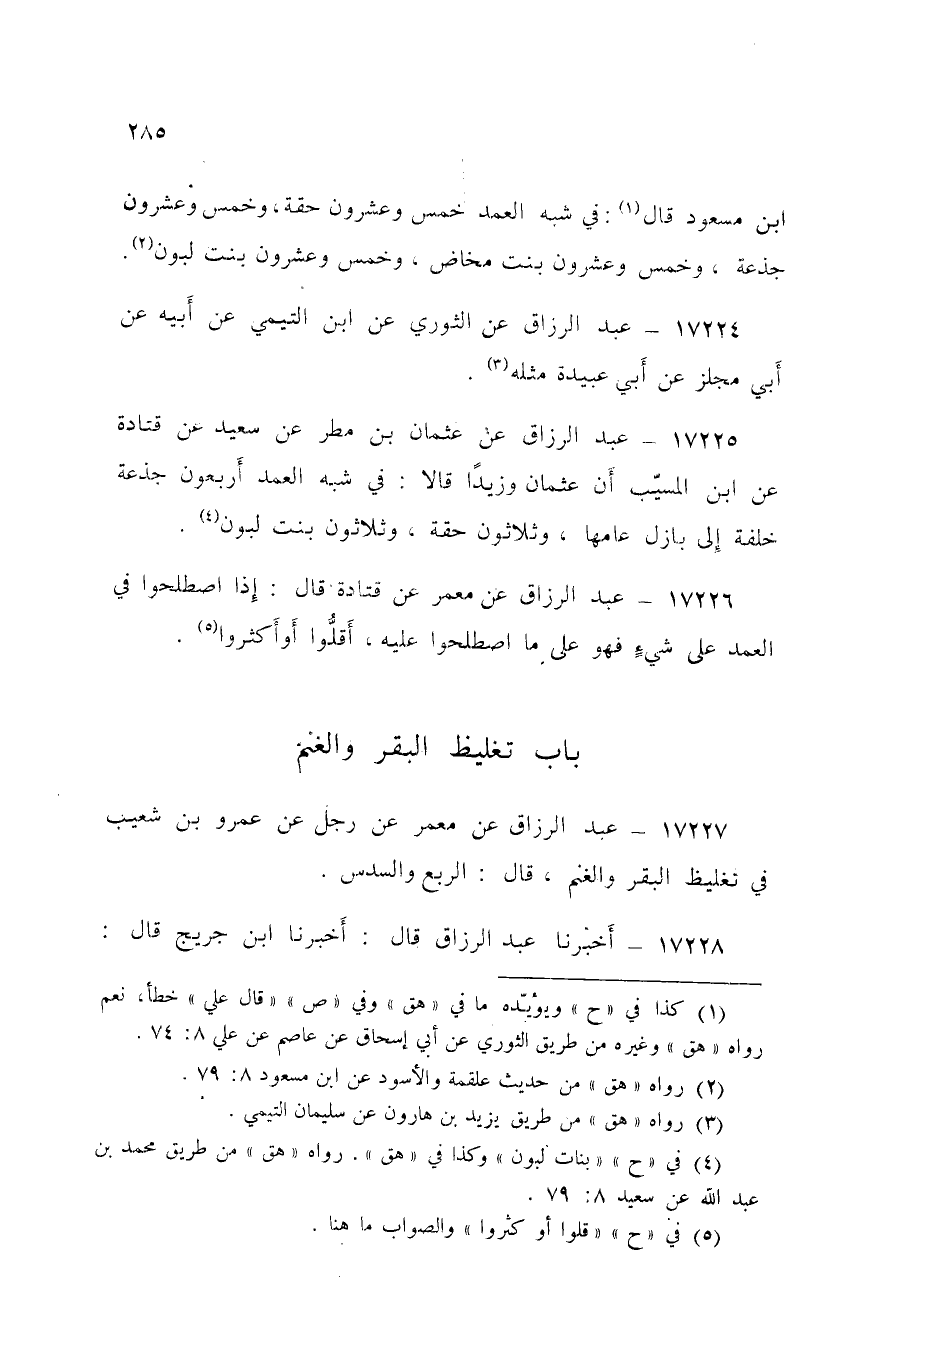 ٢٨٥
ابن مسعود قال(١) : في شبه العمد خمس وعشرون حقة، وخمس وعشرون
جذعة ، وخمس وعشرون بنت مخاض ، وخمس وعشرون بنت لبون(٢).
١٧٢٢٤ – عبد الرزاق عن الثوري عن ابن التيمي عن أبيه عن
أبي مجلز عن أبي عبيدة مثله(٣) .
١٧٢٢٥ – عبد الرزاق عن عثمان بن مطر عن سعيد عن قتادة
عن ابن المسيّب أن عثمان وزيدًا قالا : في شبه العمد أربعون جذعة
خلفة إلى بازل عامها ، وثلاثون حقة ، وثلاثون بنت لبون(٤) .
١٧٢٢٦ – عبد الرزاق عن معمر عن قتادة قال : إذا اصطلحوا في
العمد على شيءٍ فهو على ما اصطلحوا عليه ، أقلُّوا أوأكثروا(٥) .
باب تغليظ البقر والغنم
١٧٢٢٧ – عبد الرزاق عن معمر عن رجل عن عمرو بن شعيب
في تغليظ البقر والغنم ، قال : الربع والسدس .
١٧٢٢٨ – أخبرنا عبد الرزاق قال : أخبرنا ابن جريج قال :
(١) كذا في « ح » ويؤيّده ما في « هق » وفي « ص » « قال علي » خطأ، نعم
رواه « هق » وغيره من طريق الثوري عن أبي إسحاق عن عاصم عن علي ٨: ٧٤ .
(٢) رواه « هق » من حديث علقمة والأسود عن ابن مسعود ٨: ٧٩ .
(٣) رواه « هق » من طريق يزيد بن هارون عن سليمان التيمي .
(٤) في « ح » « بنات لبون » وكذا في « هق » . رواه « هق » من طريق محمد بن
عبد الله عن سعيد ٨: ٧٩ .
(٥) في « ح » « قلوا أو كثروا » والصواب ما هنا .